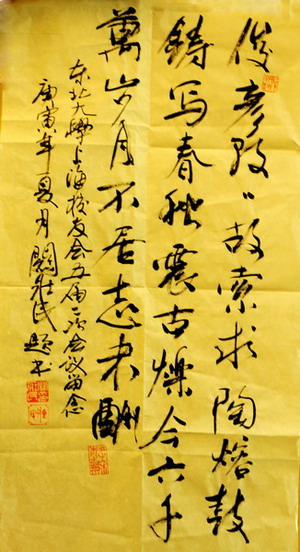 俊彦孜〃故索求陶熔鼓
铸写春秋震古烁今六千
万岁月不居志未酬
东北大学上海校友会五届二次会议留念
庚寅年夏月阚壮民题书